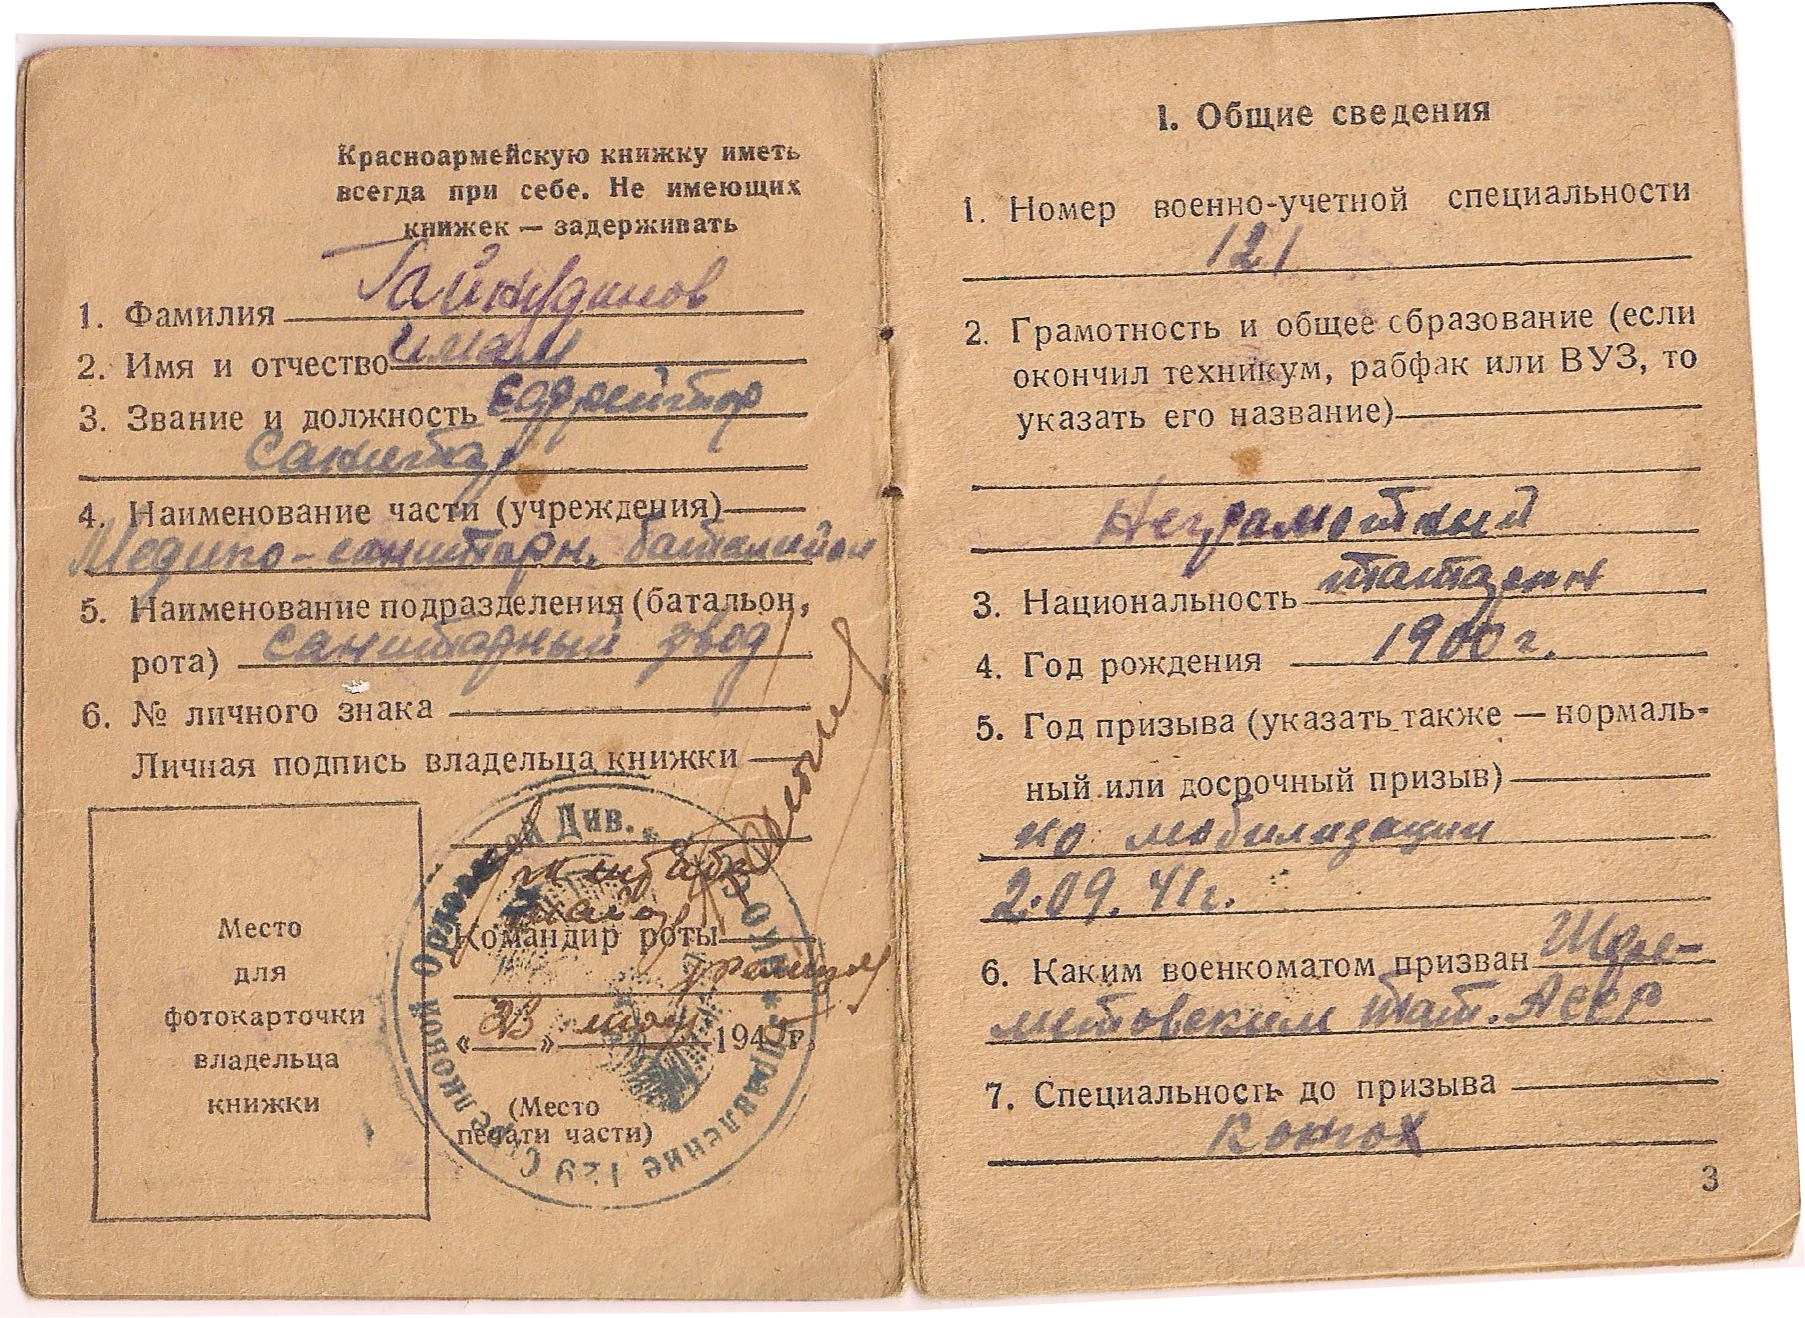 Красноармейскую книжку иметь
всегда при себе. Не имеющих
книжек — задерживать
1. Фамилия Гайнудинов
2. Имя и отчество имам
3. Звание и должность ефрейтор
санитар
4. Наименование части (учреждения)
Медико-санитарн. баталийон
5. Наименование подразделения (батальон,
рота) санитарный звод
6. № личного знака
Личная подпись владельца книжки
Командир роты
« 23 » 194 г.
(Место
печати части)
Место
для
фотокарточки
владельца
книжки
Управление 129 Стрелковой Орловской Див.
1. Общие сведения
1. Номер военно-учетной специальности
121
2. Грамотность и общее образование (если
окончил техникум, рабфак или ВУЗ, то
указать его название)
Неграмотный
3. Национальность татарин
4. Год рождения 1900 г.
5. Год призыва (указать также — нормаль-
ный или досрочный призыв)
по мобилизации
2.09.41г.
6. Каким военкоматом призван Шере-
метовским Тат. АССР
7. Специальность до призыва
конюх
3